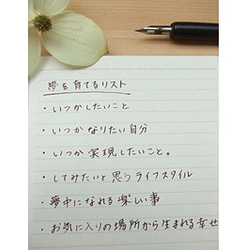 夢を育てるリスト
・いつかしたいこと
・いつかなりたい自分
・いつか実現したいこと。
・してみたいと思うライフスタイル
・夢中になれる楽しい事
・お気に入りの場所から生まれる幸せ